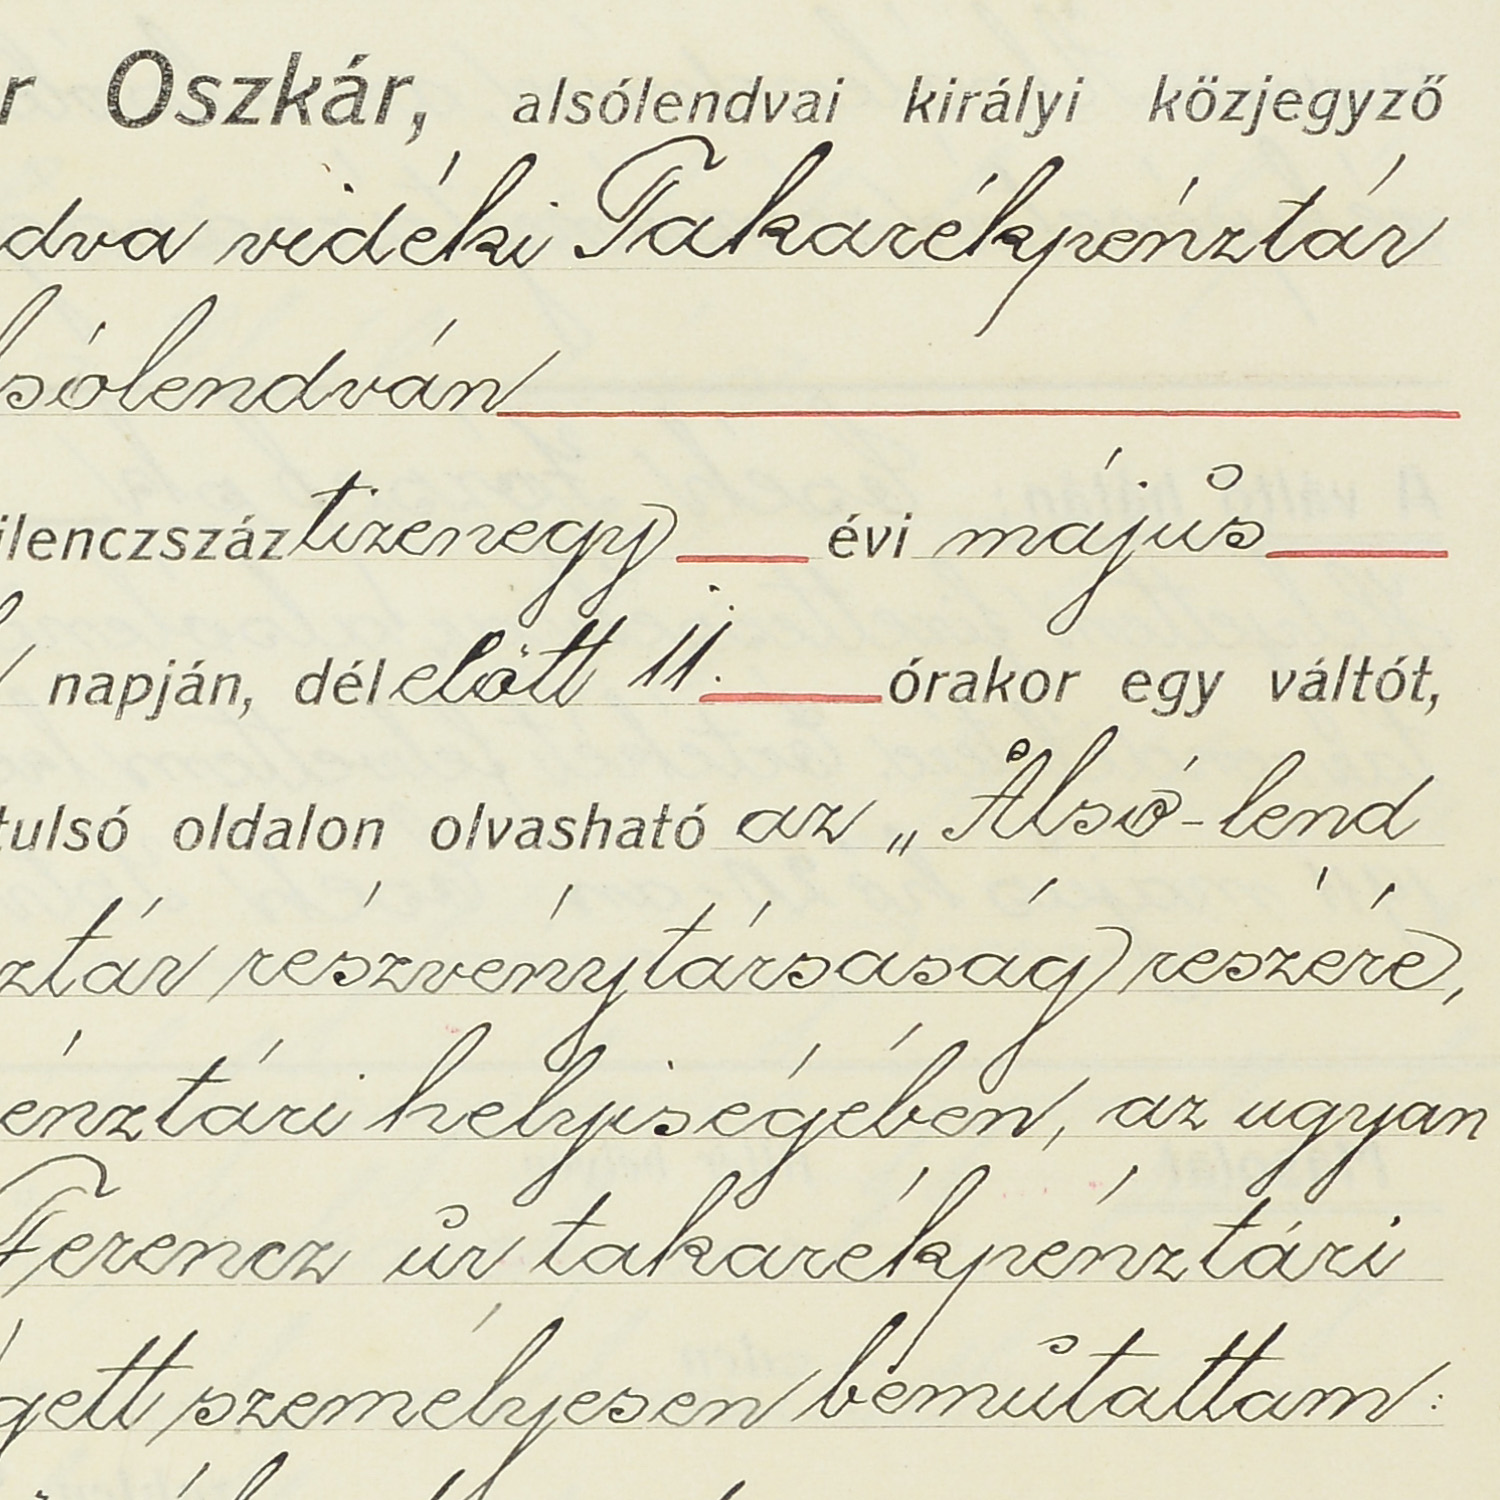 r Oszkár, alsólendvai királyi közjegyző
dva vidéki Takarékpénztár
lsólendván
ilenczszáz tizenegy évi május
napján, délelőtt 11. órakor egy váltót,
tulsó oldalon olvasható az „Alsó-lend
ztár részvénytársaság részére,
énztári helyiségében, az ugyan
Ferencz úr takarékpénztári
gett személyesen bemutattam: